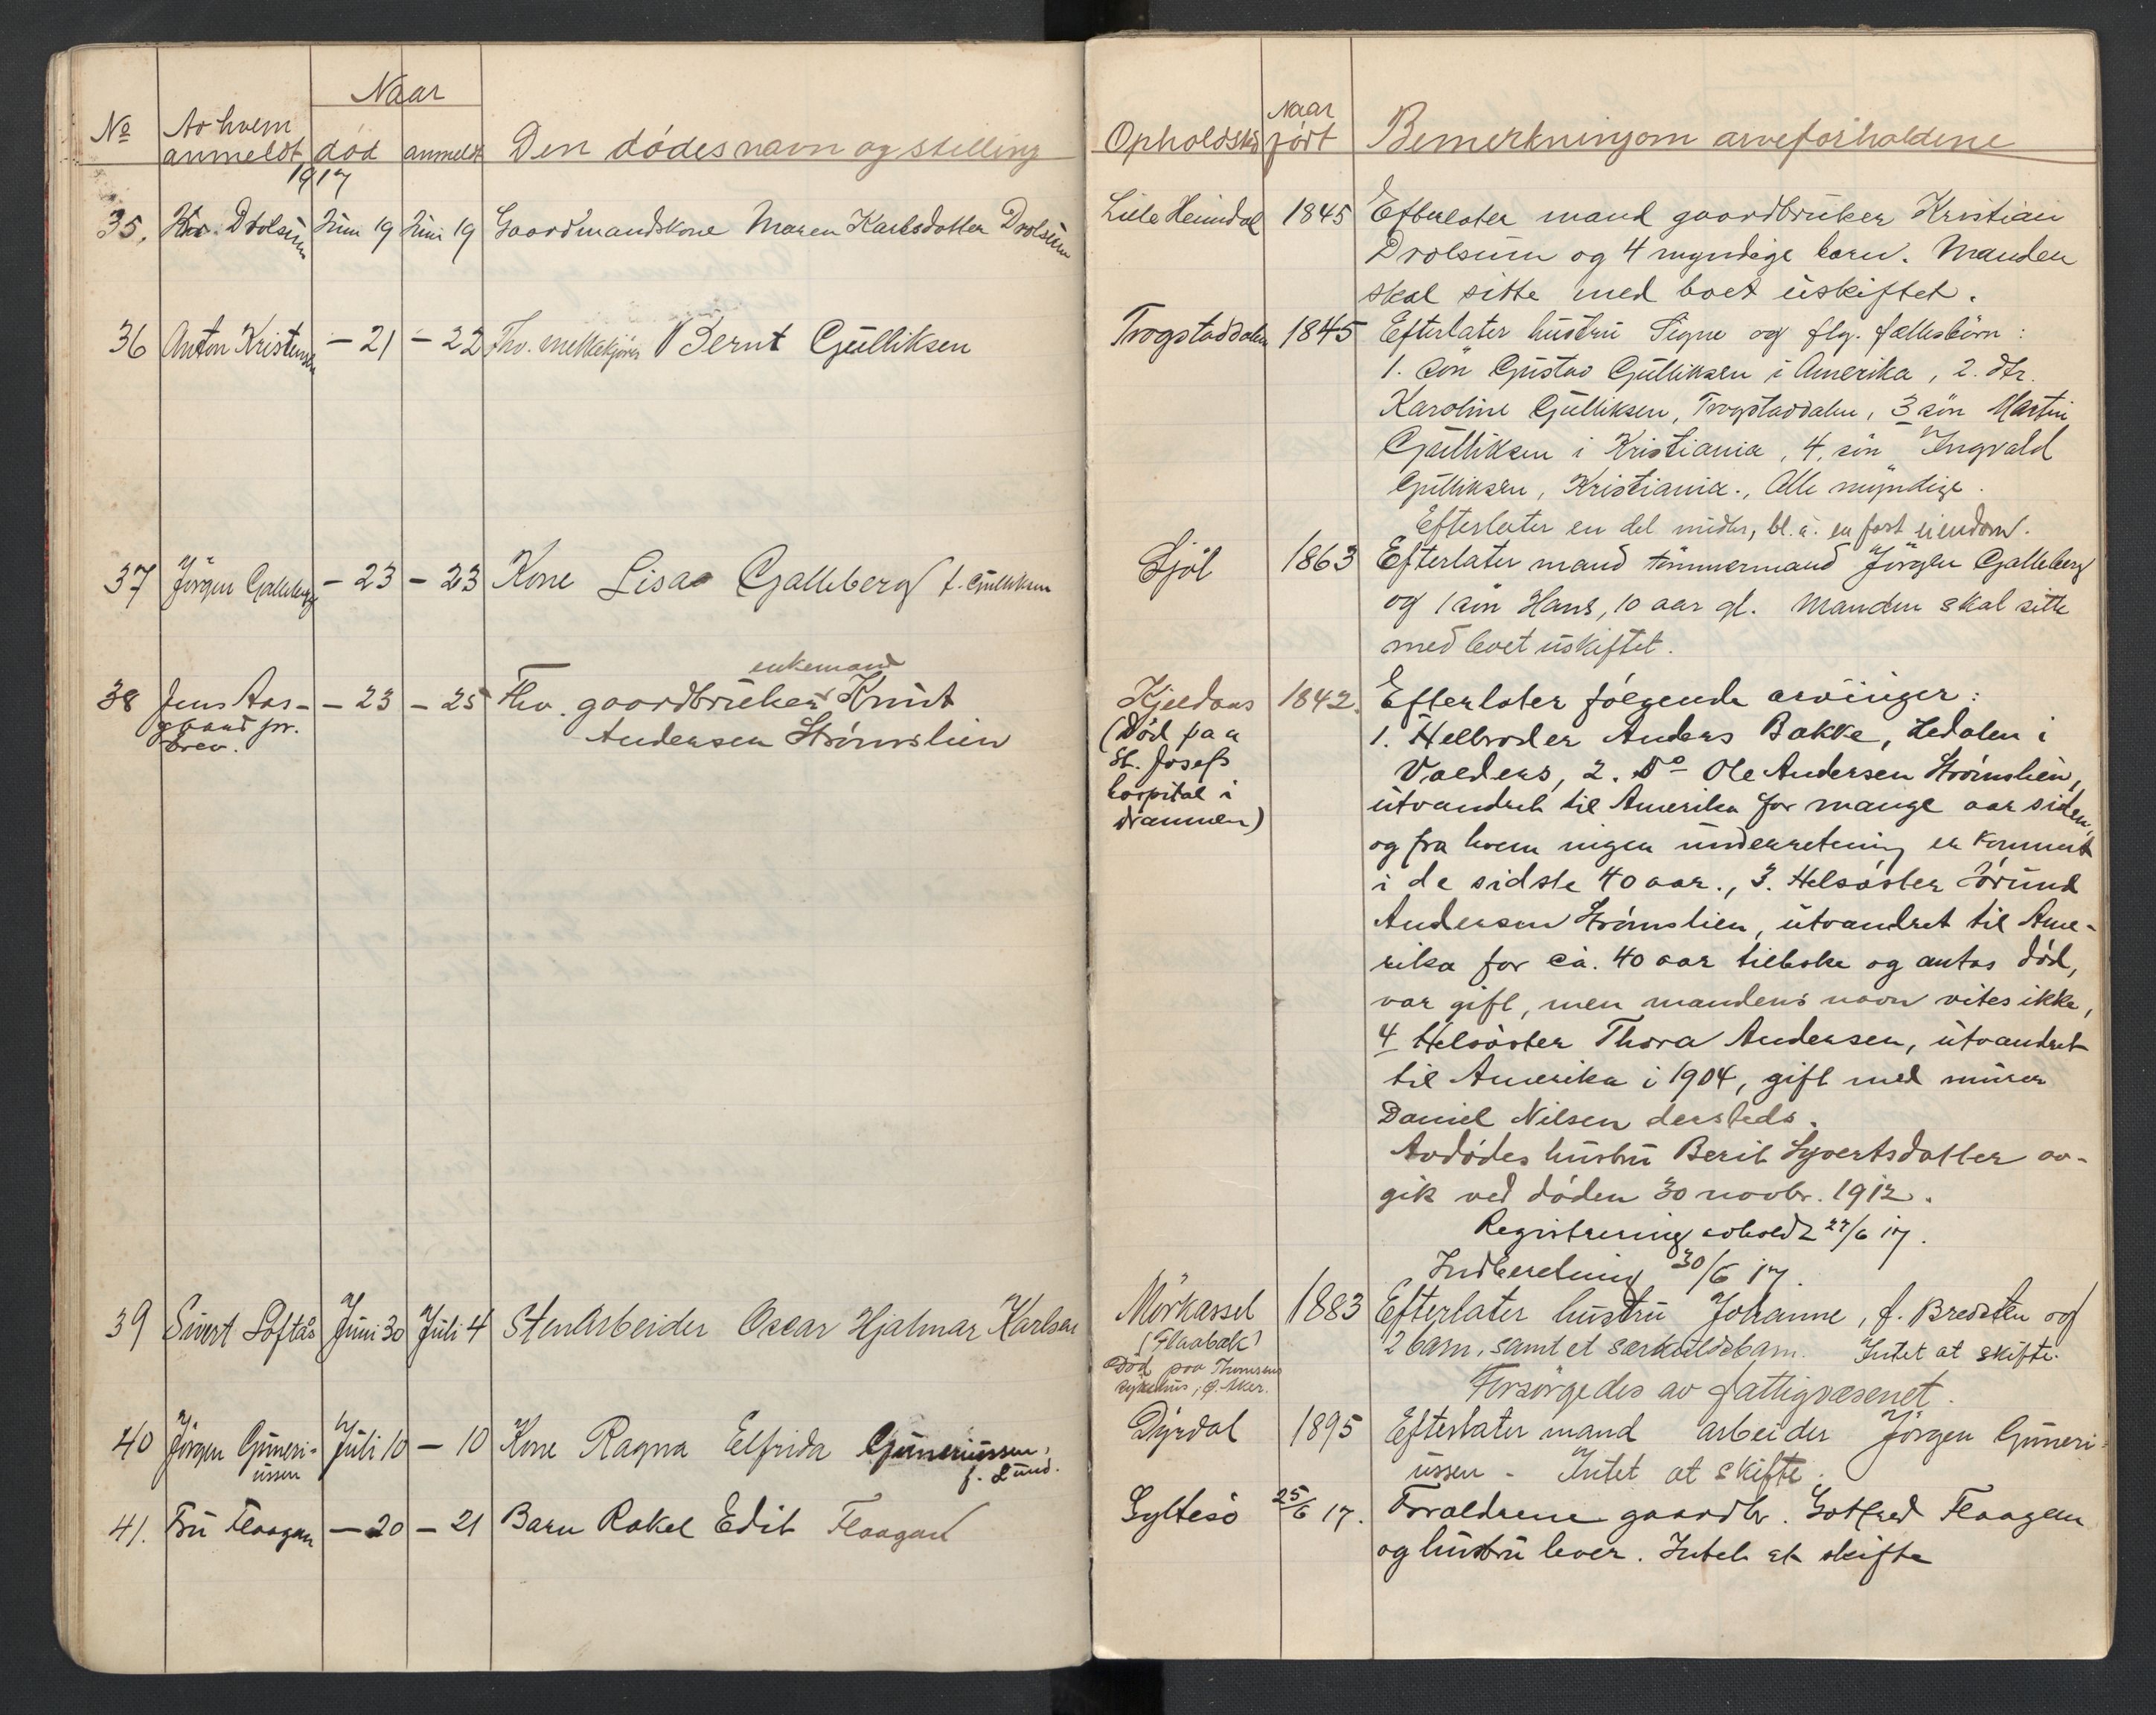 Naar
No Av hvem anmeldt død anmeldt Den dødes navn og stilling
1917
35. Kr. Drolsum Juni 19 Juni 19 Gaardmandskone Maren Karlsdatter Drolsum
36 Anton Kristensen - 21 - 22 Fhv. melkekjører Bernt Gulliksen
37 Jörgen Galleberg - 23 - 23 Kone Lisa Galleberg f. Gulliksen
enkemand
38 Jens Aas- - 23 - 25 Fhv. gaardbruker Knut
gaard pr. Andersen Strömslien
brev.
39 Sivert Löftås Juni 30 Juli 4 Stenarbeider Oscar Hjalmar Karlsen
40 Jörgen Guneri- Juli 10 - 10 Kone Ragna Elfrida Guneriussen,
ussen f. Lund.
41. Fru Flaagan - 20 - 21 Barn Rakel Edit Flaagan
Naar
Opholdssted født Bemerkning om arveforholdene
Lille Heimdal 1845 Efterlater mand gaardbruker Kristian
Drolsum og 4 myndige barn. Manden
skal sitte med boet uskiftet.
Trogstaddalen 1845 Efterlater hustru Signe og flg. fællesbörn:
1. sön Gustav Gulliksen i Amerika, 2. dtr.
Karoline Gulliksen, Trogstaddalen, 3 sön Martin
Gulliksen i Kristiania, 4. sön Ingvald
Gulliksen, Kristiania., Alle myndige.
Efterlater en del midler, bl. a. en fast eiendom.
Sjöl 1863 Efterlater mand tömmermand Jörgen Galleberg
og 1 sön Hans, 10 aar gl. Manden skal sitte
med boet uskiftet.
Kjeldaas 1842. Efterlater følgende arvinger:
(Død paa 1. Helbroder Anders Bakke, Hedalen i
St. Josefs Valders, 2. Do Ole Andersen Strömslien,
hospital i utvandret til Amerika for mange aar siden,
Drammen) og fra hvem ingen underretning er kommet
i de sidste 40 aar., 3. Helsøster Jörund
Andersen Strömslien, utvandret til Ame-
rika for ca. 40 aar tilbake og antas død,
var gift, men mandens navn vites ikke,
4 Helsøster Thora Andersen, utvandret
til Amerika i 1904, gift med murer
Daniel Nilsen dersteds.
Avdødes hustru Berit Syvertsdatter av-
gik ved døden 30 novbr. 1912.
Registrering avholdt 27/6 17.
Indberetning 30/6 17.
Mörkassel 1883 Efterlater hustru Johanne, f. Bredsten og
(Flaabæk) 2 barn, samt et særkuldsbarn. Intet at skifte.
Död paa Thomsens
sykehus, Ø. Aker. Forsörgedes av fattigvæsenet.
Dyrdal 1895 Efterlater mand arbeider Jörgen Guneri-
ussen - Intet at skifte.
Syltesö 25/6 17. Foraldrene gaardbr. Gotfred Flaagan
og hustru lever. Intet at skifte